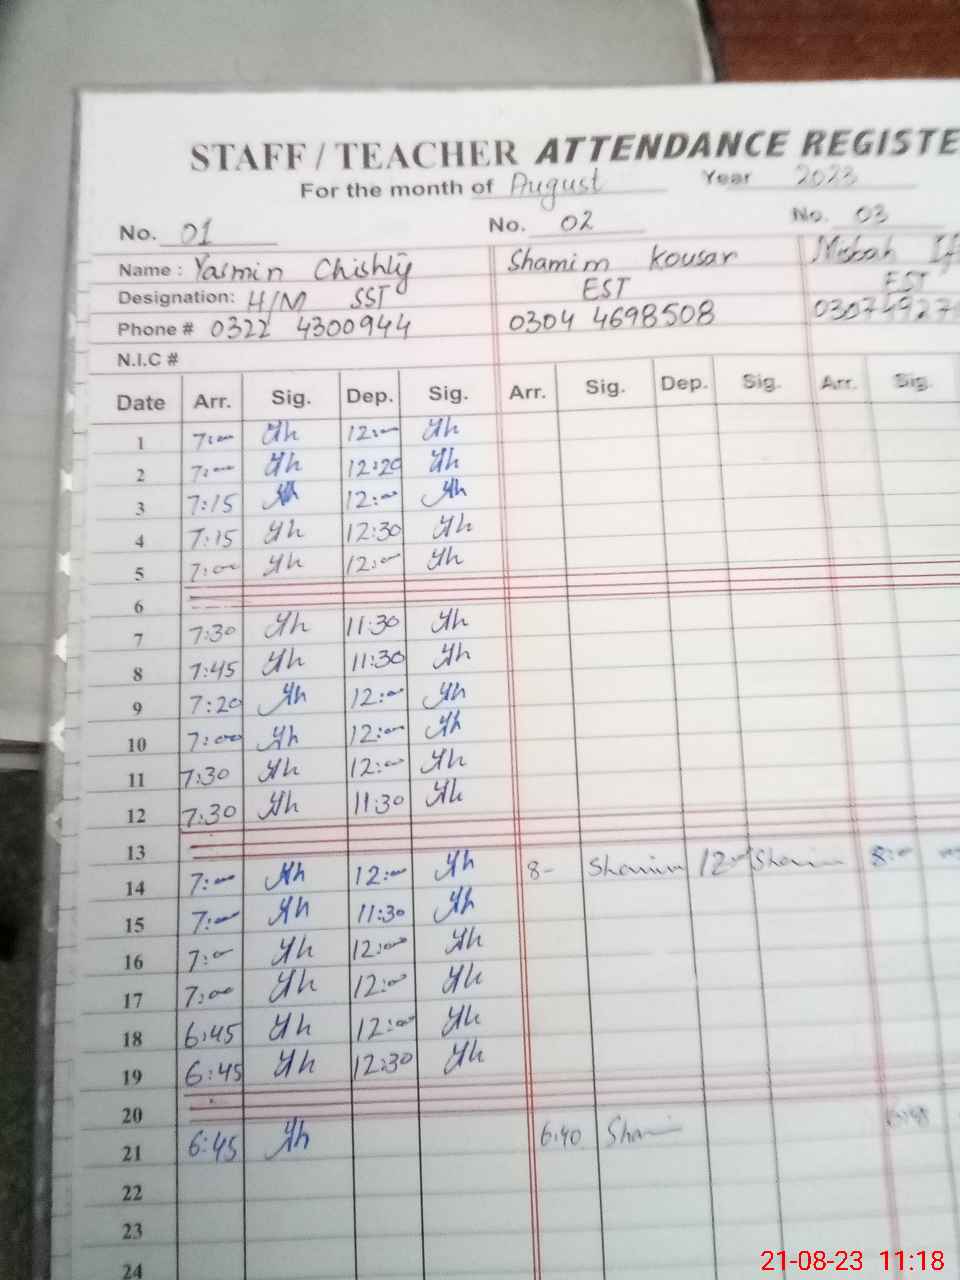 STAFF / TEACHER ATTENDANCE REGISTE
For the month of August Year 2023
No. 01 No. 02 No. 03
Name : Yasmin Chishty Shamim Kousar Misbah
Designation: H/M SST EST EST
Phone # 0322 4300944 0304 4698508 03074927
N.I.C #
Date Arr. Sig. Dep. Sig. Arr. Sig. Dep. Sig. Arr. Sig.
1 7:00 12:00
2 7:00 12:20
3 7:15 12:00
4 7:15 12:30
5 7:00 12:00
6
7 7:30 11:30
8 7:45 11:30
9 7:20 12:00
10 7:00 12:00
11 7:30 12:00
12 7:30 11:30
13
14 7:00 12:00 8- Shamim 12:00 Shamim 8:00
15 7:00 11:30
16 7:00 12:00
17 7:00 12:00
18 6:45 12:00
19 6:45 12:30
20
21 6:45 6:40 Sham
22
23
24
21-08-23 11:18